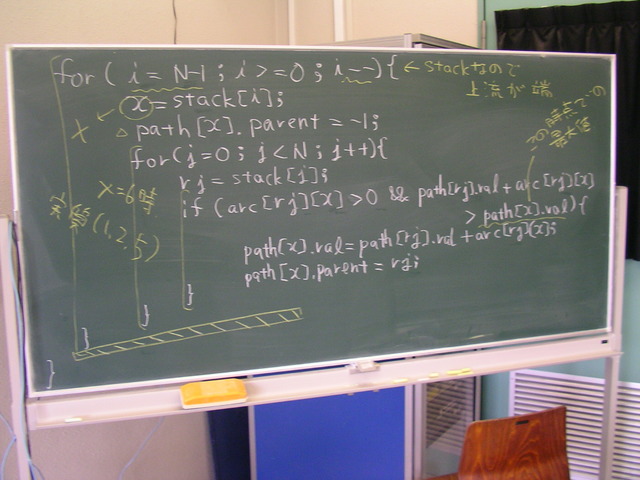 for ( i = N-1 ; i >= 0 ; i -- ) { ← stackなので
上流が端
x = stack[i];
x
△ path[x].parent = -1;
時点での
最大値
for(j=0; j<N; j++){
rj = stack[j];
x=6時
(1,2,5)
if (arc[rj][x]>0 && path[rj].val + arc[rj][x]
> path[x].val){
path[x].val=path[rj].val + arc[rj][x];
path[x].parent = rj;
}
}
}
}